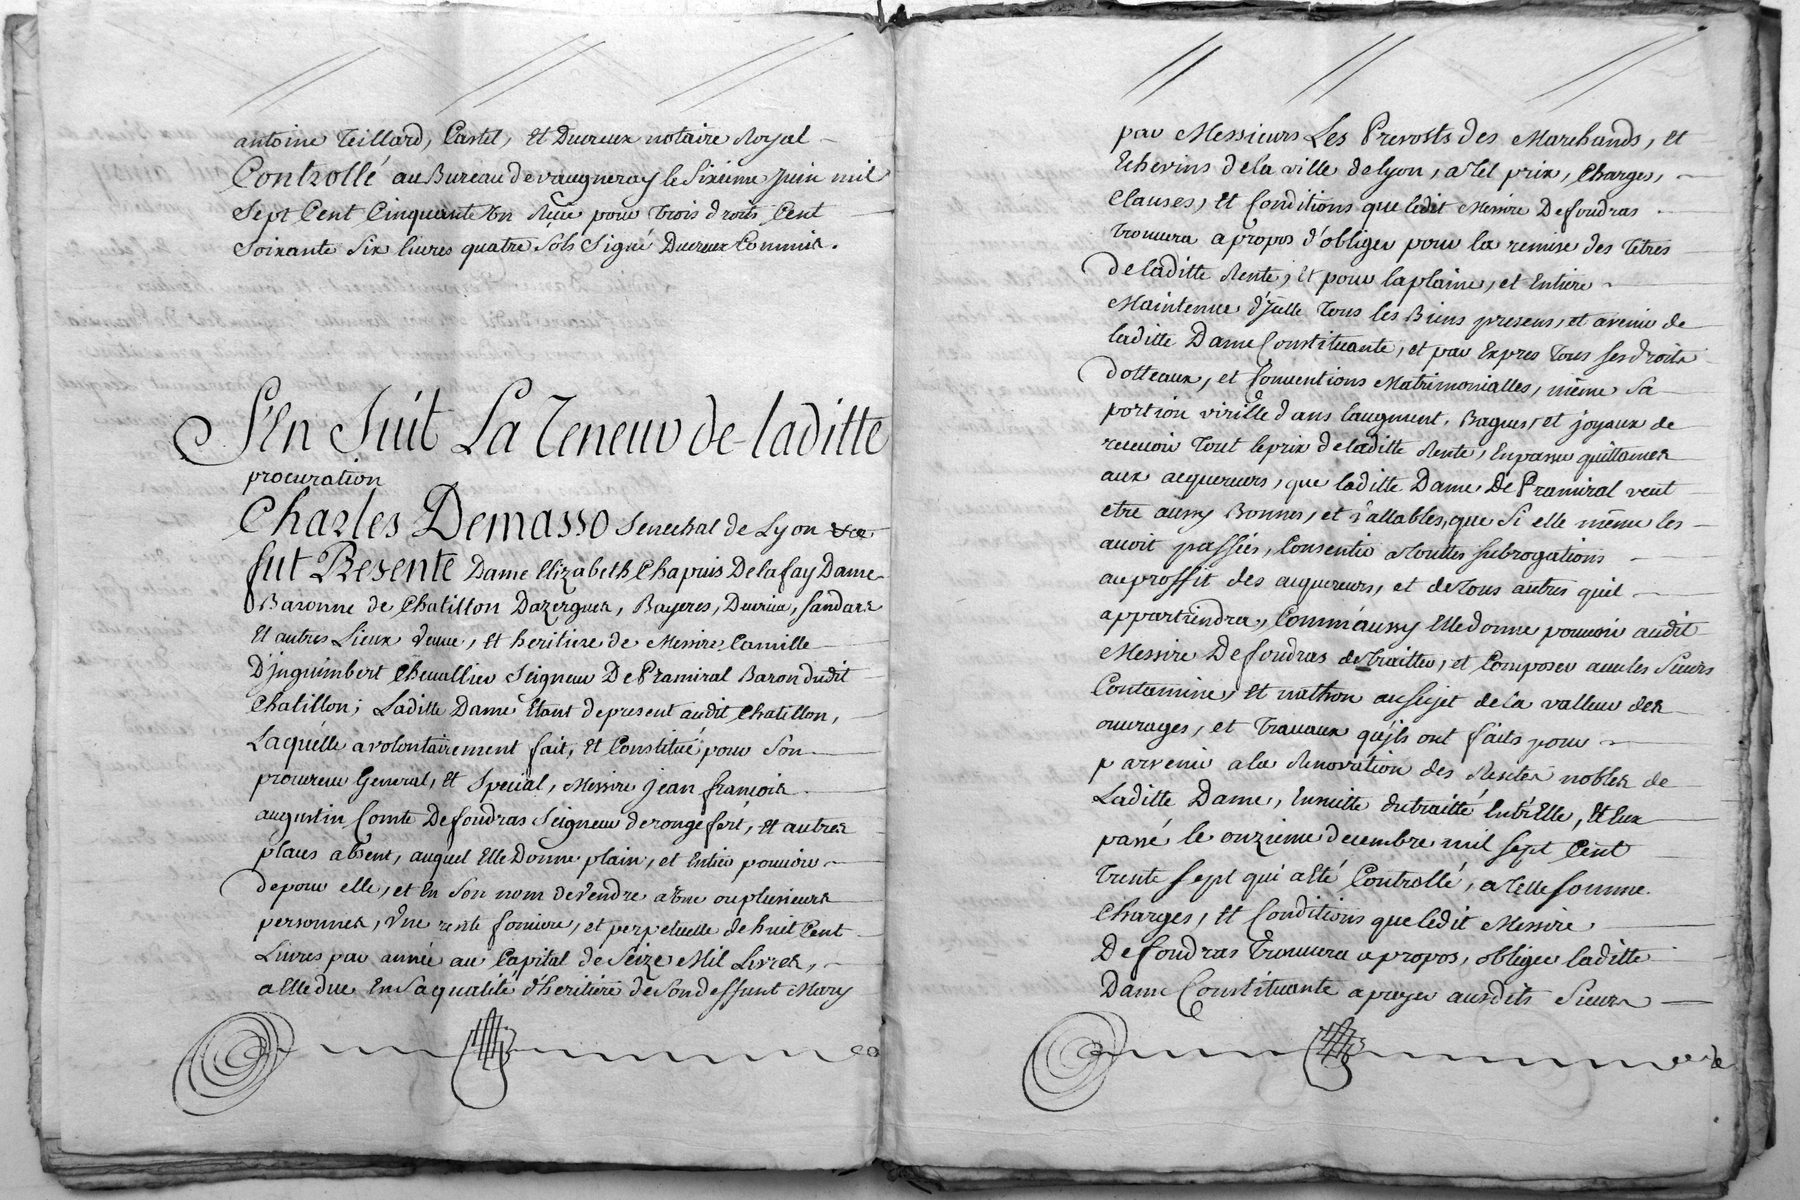 antoine Teillard, Castel, et Ducreux notaire Royal
Controllé au Bureau de vaugneray le sixieme juin mil
sept Cent Cinquante un Reçu pour trois droits Cent
soixante six livres quatre sols signé Ducreux Commis.
S'En Suit La Teneur de laditte
procuration
Charles Demasso Senechal de Lyon &ca
fut Presente Dame Elizabeth Chapuis De la fay Dame
Baronne de Chatillon Dazergues, Bayeres, Deurieu, Sandars
Et autres Lieux veuve, et heritiere de Messire Camille
D'Inguimbert Chevallier Seigneur De Pramiral Baron dudit
Chatillon; Laditte Dame Etant de present audit Chatillon,
Laquelle a volontairement fait, et Constitué pour Son
procureur General, et Special, Messire Jean françois
augustin Comte De foudras Seigneur de rongefert, et autres
places absent, auquel Elle Donne plain, et Entier pouvoir
de pour elle, et En Son nom de Vendre a Une ou plusieurs
personnes, Une rente fonciere, et perpetuelle de huit Cent
Livres par année au Capital de Seize Mil Livres,
a Elle due En Sa qualité d'heritiere de Son deffunt Mary
par Messieurs Les Prevosts des Marchands, et
Echevins de la ville de Lyon, a Tel prix, Charges,
Clauses, et Conditions que ledit Messire De foudras
Trouvera apropos d'obliger pour la remise des Tetres
de laditte Rente, et pour la plaine, et Entiere
Maintenue d'jcelle Tous les Biens presens, et avenir de
laditte Dame Constituante, et par Expres Tous ses droits
dotteaux, et Conventions Matrimonialles, même Sa
portion virille dans laugment, Bagues, et joyaux de
recevoir Tout le prix de laditte Rente, En passer quittances
aux acquereurs, que laditte Dame De Pramiral veut
etre aussy Bonnes, et vallables, que Si elle même les
avoit passées, Consentir a Touttes subrogations
au proffit des acquereurs, et de Tous autres quil
appartiendra, Comm'aussy Elle donne pouvoir audit
Messire De foudras de Traitter, et Composer avec les Sieurs
Contamine, et mithon au sujet de la valleur des
ouvrages, et Travaux qu'jls ont faits pour
parvenir a la Renovation des Rentes nobles de
Laditte Dame, Ensuitte du traitté Entr'Elle, et Eux
passé le onzieme decembre mil sept Cent
Trente sept qui a Eté Controllé, a Telle somme.
Charges, et Conditions que ledit Messire
De foudras Trouvera apropos, obliger laditte
Dame Constituante a payer ausdits Sieurs